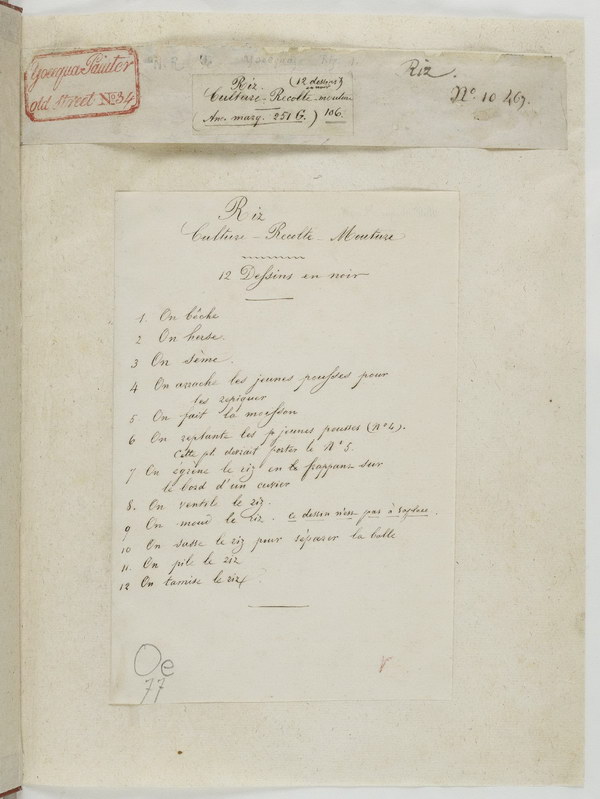 Yoeequa Painter
old street No 34
Riz (12 dessins
en noir)
Culture - Récolte - mouture
(Anc. marq. 251 G.) 106.
Riz.
No. 10 469.
Riz
Culture - Récolte - Mouture
12 Dessins en noir
1. On bêche
2 On herse.
3 On sème.
4 On arrache les jeunes pousses pour
les repiquer
5 On fait la moisson
6 On replante les jeunes pousses (No 4).
Cette pl. devrait porter le No 5.
7 On egrène le riz en le frappant sur
le bord d'un cuvier
8. On ventile le riz.
9 On moud le riz. ce dessin n'est pas à sa place.
10 On sasse le riz pour séparer la balle
11. On pile le riz
12 On tamise le riz
Oe
77